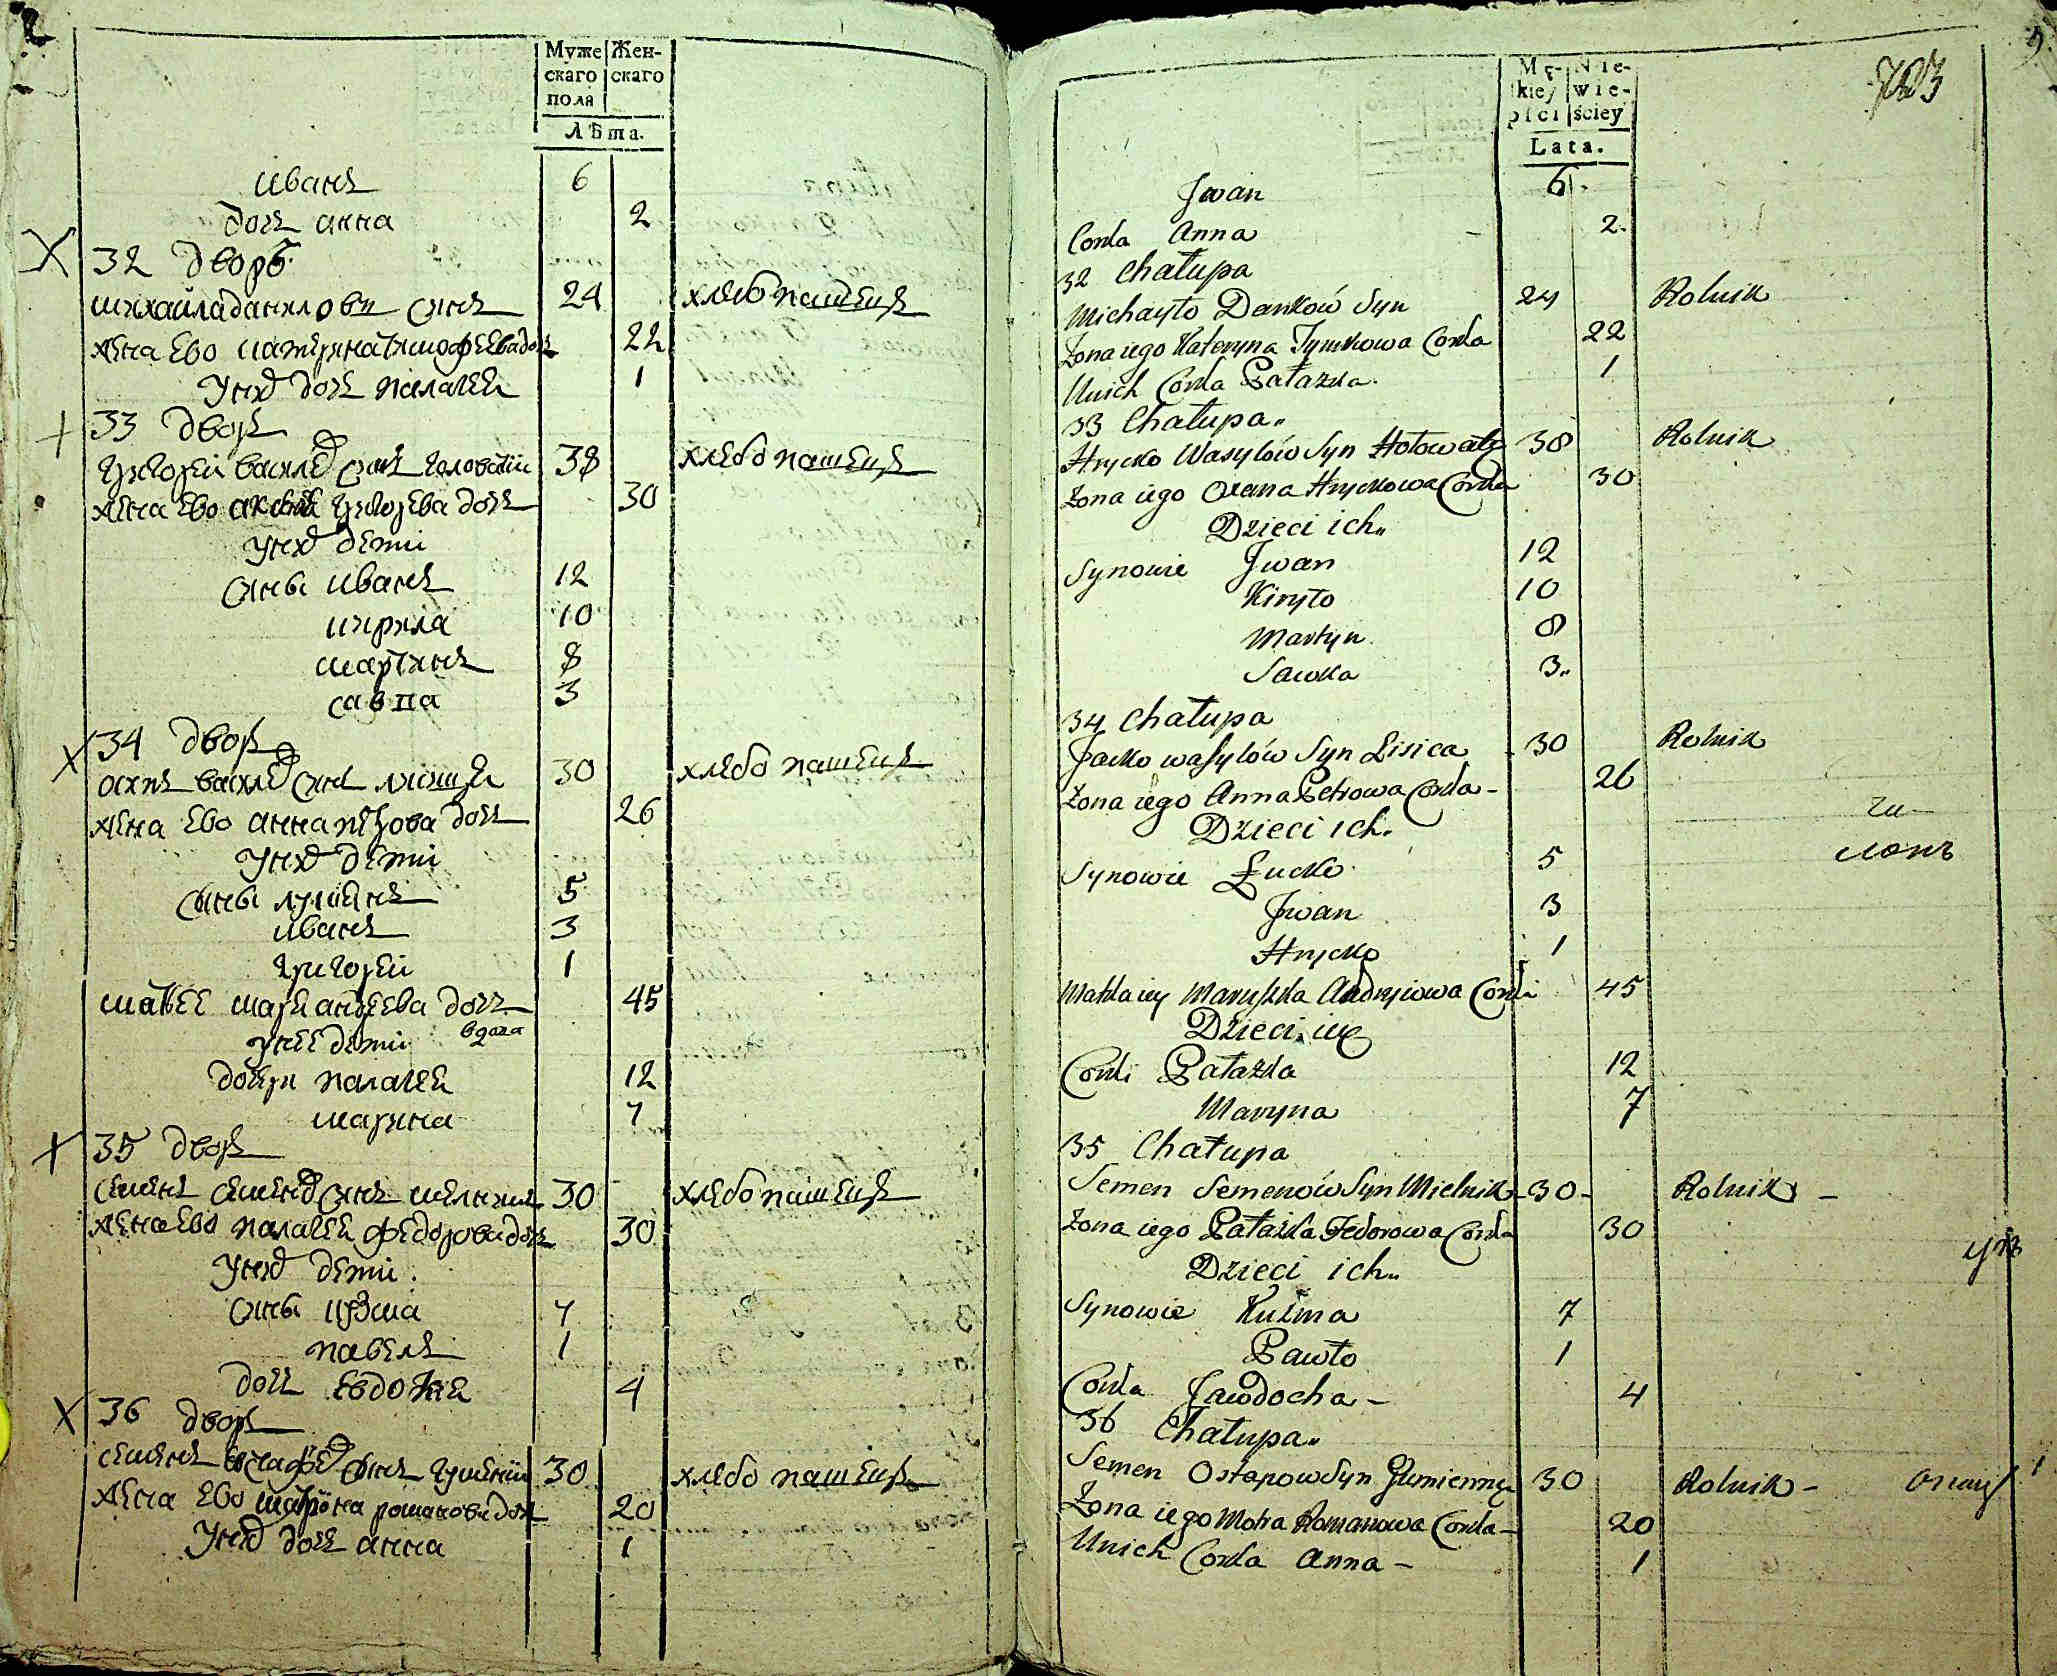 Муже Жен-
скаго скаго
поля
Лѣта.
иванъ 6
дочь анна 2
32 дворъ
михайла данилови сынъ 24 хлебопашецъ
жена ево катерина тимофеева дочь 22
у них дочь палагея 1
33 дворъ
григорей василе сынъ головатыи 38 хлебопашецъ
жена ево григорева дочь 30
у них дети
сыны иванъ 12
кирила 10
мартинъ 8
савка 3
34 дворъ
осипъ василе сынъ 30 хлебопашецъ
жена ево анна петрова дочь 26
у них дети
сыны лукиянъ 5
иванъ 3
григорей 1
мать ее маря андреева дочь 45
вдова
у нее дети
дочери палагея 12
марина 7
35 дворъ
семенъ семено сынъ мелникъ 30 хлебопашецъ
жена ево палагея федорова дочь 30
у них дети
сыны кузма 7
павелъ 1
дочь евдокия 4
36 дворъ
семенъ сынъ гуменни 30 хлебопашецъ
жена ево матрона романова дочь 20
у них дочь анна 1
9.
723
Mę- Nie-
skiey wie-
płci ściey
Lata.
Jwan 6.
Corka Anna 2.
32 Chałupa
Michayło Dankow Syn 24 Rolnik
Żona iego Kateryna Tymkowa Corka 22
Unich Corka Pałazka 1
33 Chałupa
Hrycko Wasylów Syn Hołowaty 38 Rolnik
Żona iego Oxena Hryckowa Corka 30
Dzieci ich
Synowie Jwan 12
Kiryło 10
Martyn 8
Sawka 3
34 Chałupa
Jacko wasylów Syn Lisica 30 Rolnik
Żona iego Anna Petrowa Corka 26
Dzieci ich
Synowie Łucko 5
Jwan 3
Hrycko 1
Matka iey Maryszka Andryiowa Corka 45
Dzieci iey
Corki Pałazka 12
Maryna 7
35 Chałupa
Semen Semenów Syn Mielnik 30 Rolnik
Żona iego Pałażka Fedorowa Corka 30
Dzieci ich
Synowie Kuźma 7
Pawło 1
Corka Jawdocha 4
36 Chałupa
Semen Ostapow Syn Humienny 30 Rolnik
Żona iego Motra Romanowa Corka 20
Unich Corka Anna 1